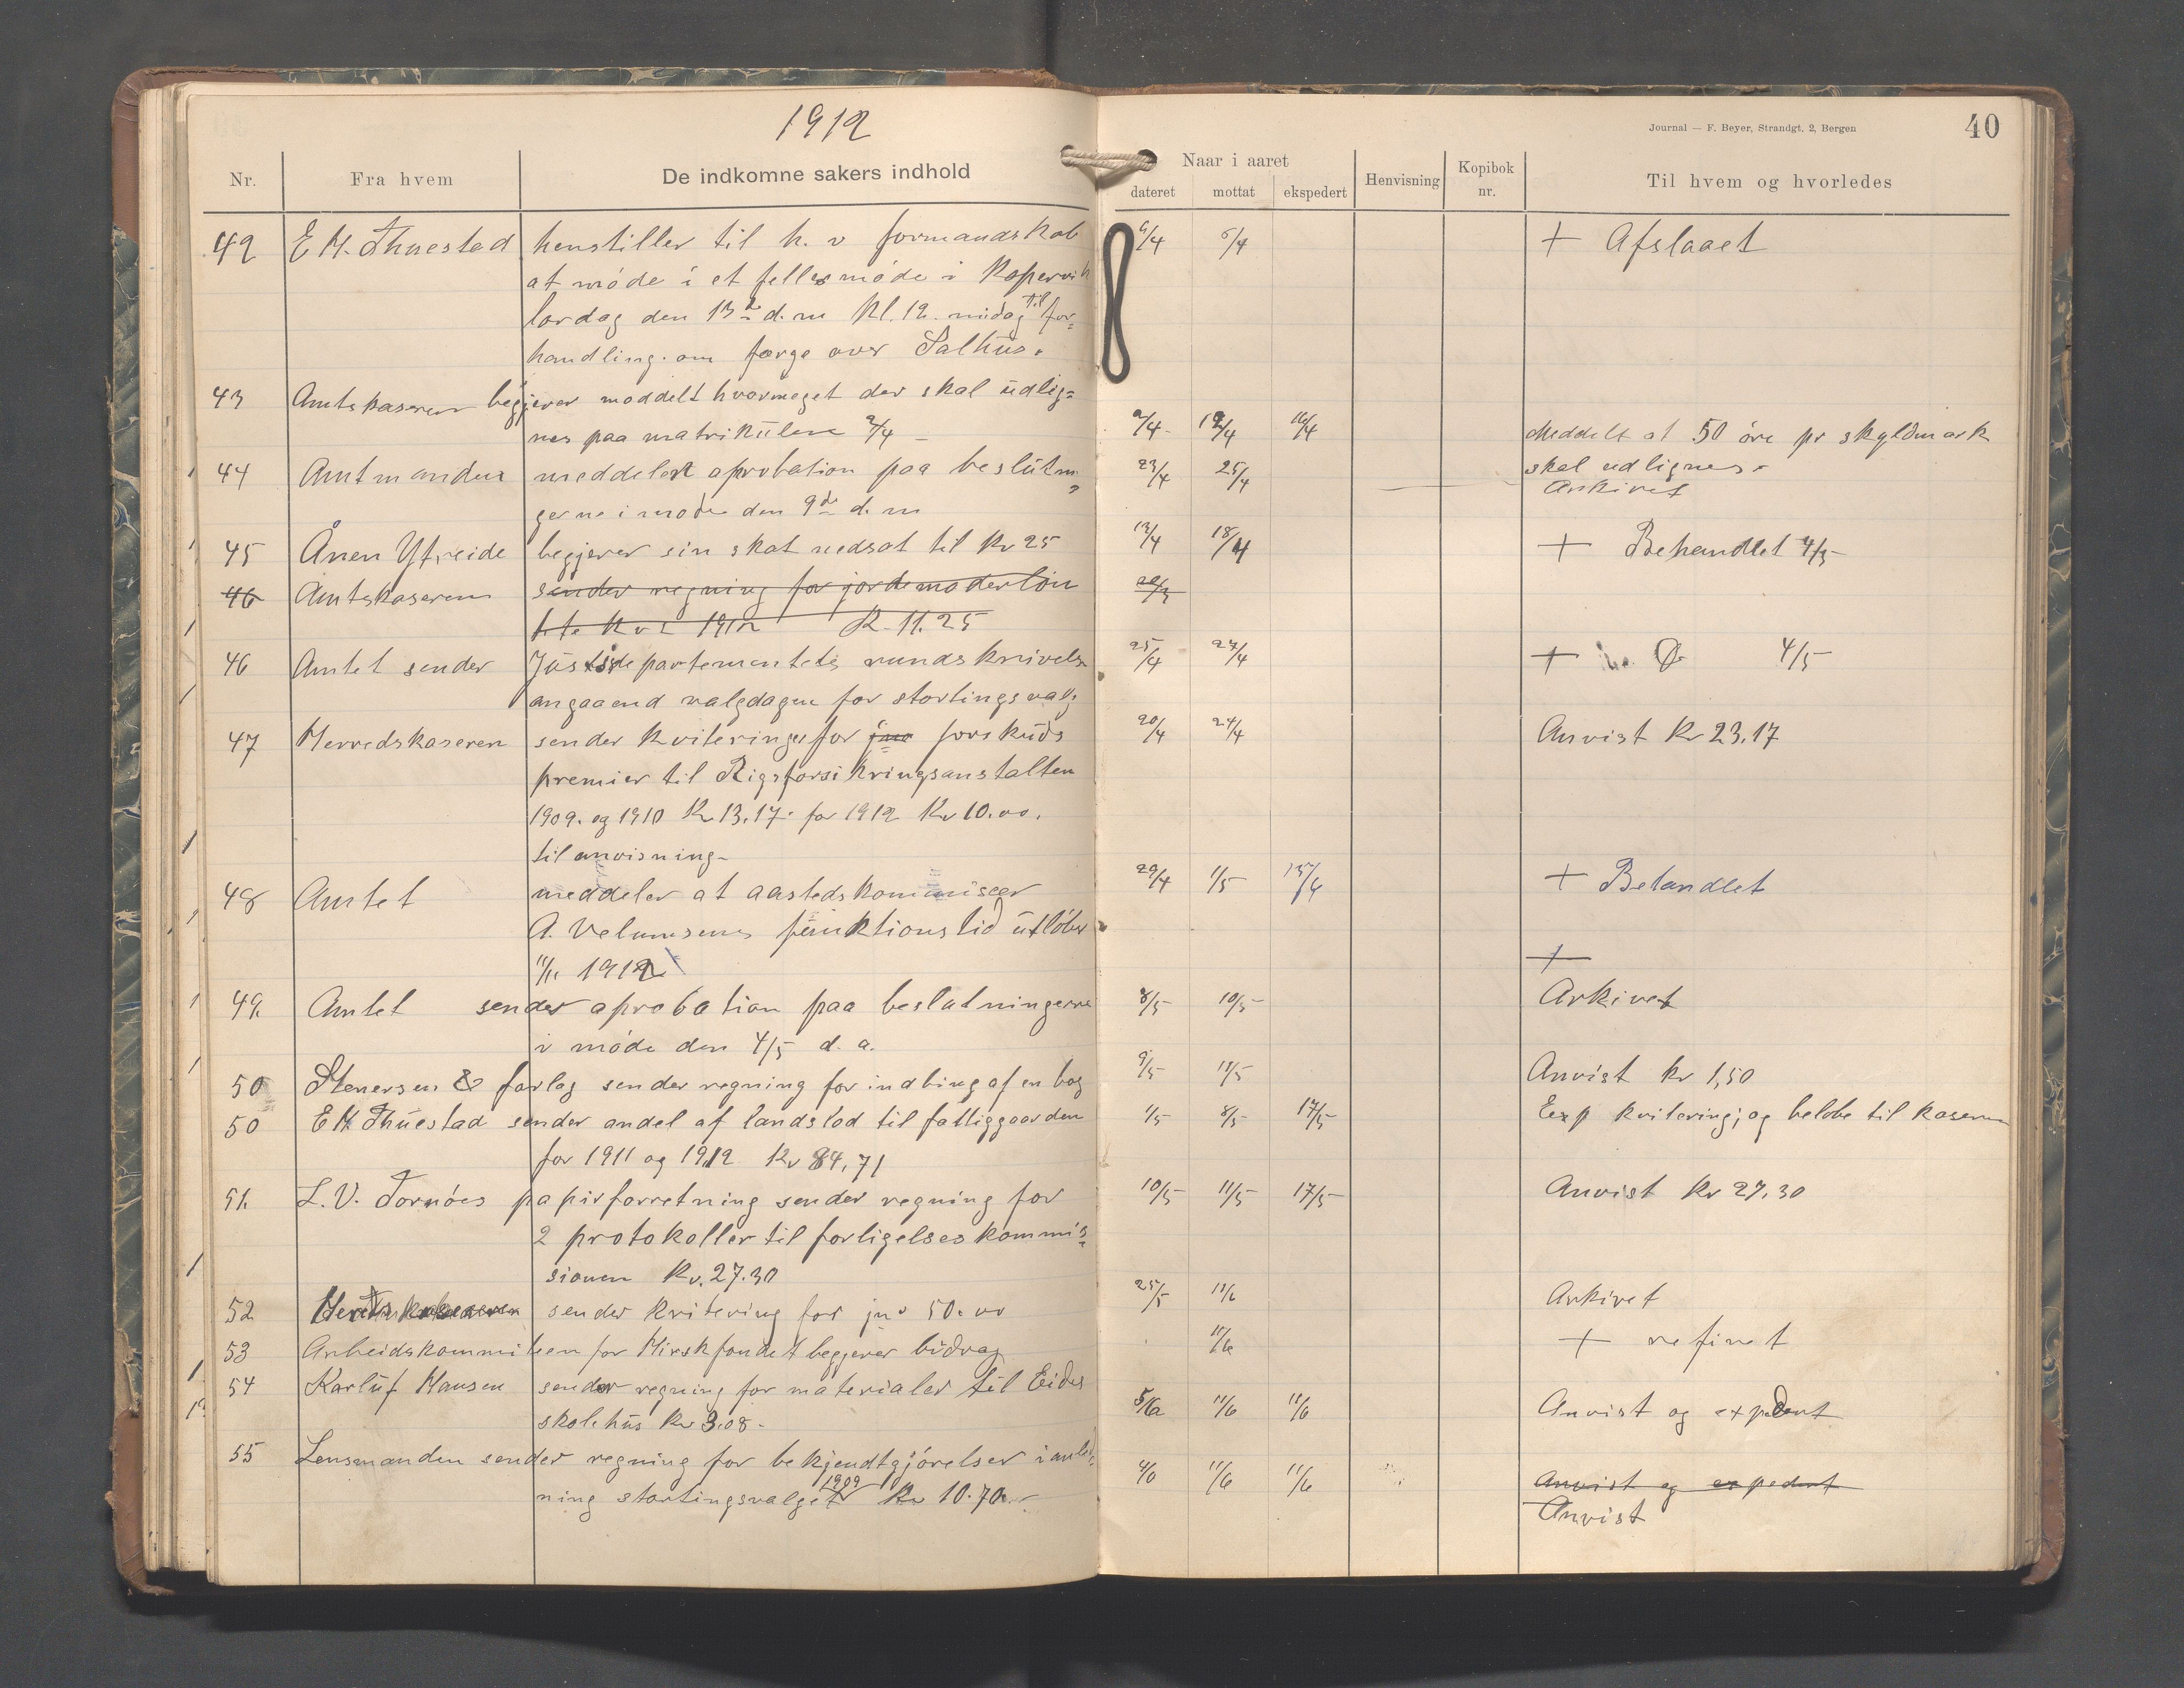 1912
Journal — F. Beyer, Strandgt. 2, Bergen
40
Nr. Fra hvem De indkomne sakers indhold Naar i aaret Henvisning Kopibok nr. Til hvem og hvorledes
dateret mottat ekspedert
42 E M. Thuestad henstiller til h. v formandskab 6/4 + Afslaaet
at møde i et felles møde i Kopervik
lørdag den 13de d. m Kl. 12. midag til for=
handling. om færge over Salhus.
43 Amtskaseren begjerer meddelt hvormeget der skal udlig=
nes paa matrikulen 2/4 – 2/4 16/4 Meddelt at 50 øre pr skyldmark
skal udlignes.
44 Amtmanden meddeler aprobation paa beslutnin 23/4 25/4 Arkivet
gerne i møde den 9de d. m
45 Ånen Ytreide begjerer sin skat nedsat til Kr 25 13/4 18/4 + Behandlet 4/5
46 Amtskaseren sender regning for jordemoderløn
1912 K 11.25
46 Amtet sender Justisdepartementets rundskrivelse 25/4 27/4 + 4/5
angaaend valgdagen for stortingsvalg
47 Herredskaseren sender kviteringer for forskuds 20/4 24/4 Anvist Kr 23.17
premier til Rigsforsikringsanstalten
1909. og 1910 Kr 13.17. for 1912 Kr 10.00.
til anvisning
48 Amtet meddeler at aastedskommiser 29/4 1/5 + Behandlet
A. Velumsens funktionstid utløber
11/11 1912 +
49. Amtet sender aprobation paa beslutningerne 8/5 10/5 Arkivet
i møde den 4/5 d. a.
50 Stenersen & forlag sender regning for indbing af en bog 9/5 11/5 Anvist kr 1,50
50 E M Thuestad sender andel af landslod til fattiggaarden 1/5 8/5 17/5 Exp kvitering; og beløbe til kaseren
for 1911 og 1912 Kr 84,71
51. L. V. Tornøes papirforretning sender regning for 10/5 11/5 17/5 Anvist Kr 27.30
2 protokoller til forligelseskommis=
sionen Kr. 27.30
52 Herredskaseren sender kvitering for 50.00 25/5 11/6 Arkivet
53 Arbeidskommiteen for Hirskfondet begjerer bidrag 11/6 +
54 Karluf Hansen sender regning for materialer til Eides
skolehus Kr 3.08. 11/6 11/6 Anvist og expedert
55 Lensmanden sender regning for bekjendtgjørelser i anled=
ning stortingsvalget 1909 Kr 10.70 11/6 11/6 Anvist og expedert
Anvist